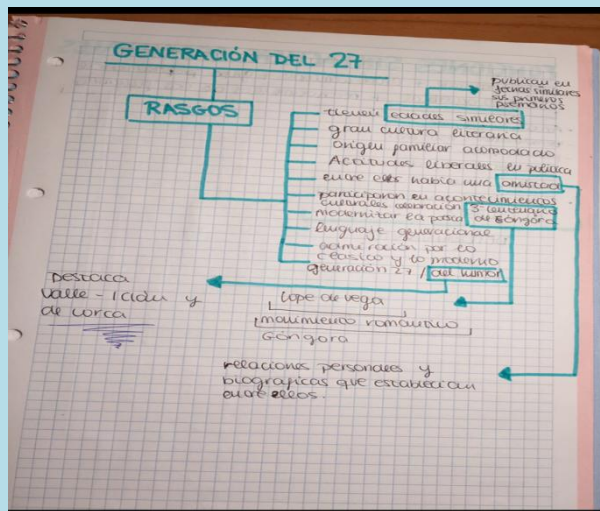 GENERACIÓN DEL 27
publican en
fechas similares
sus primeros
poemarios
RASGOS
tienen edades similares
gran cultura literaria
origen familiar acomodado
Actitudes liberales en política
entre ellos había una amistad
participaron en acontecimientos
culturales celebración 3º centenario
modernizar la poesía de Góngora
lenguaje generacional
admiración por lo
clásico y lo moderno
generación 27 / del humor
Destaca
Valle-Iclán y
de Lorca
Lope de Vega
movimiento romántico
Góngora
relaciones personales y
biográficas que establecían
entre ellos.